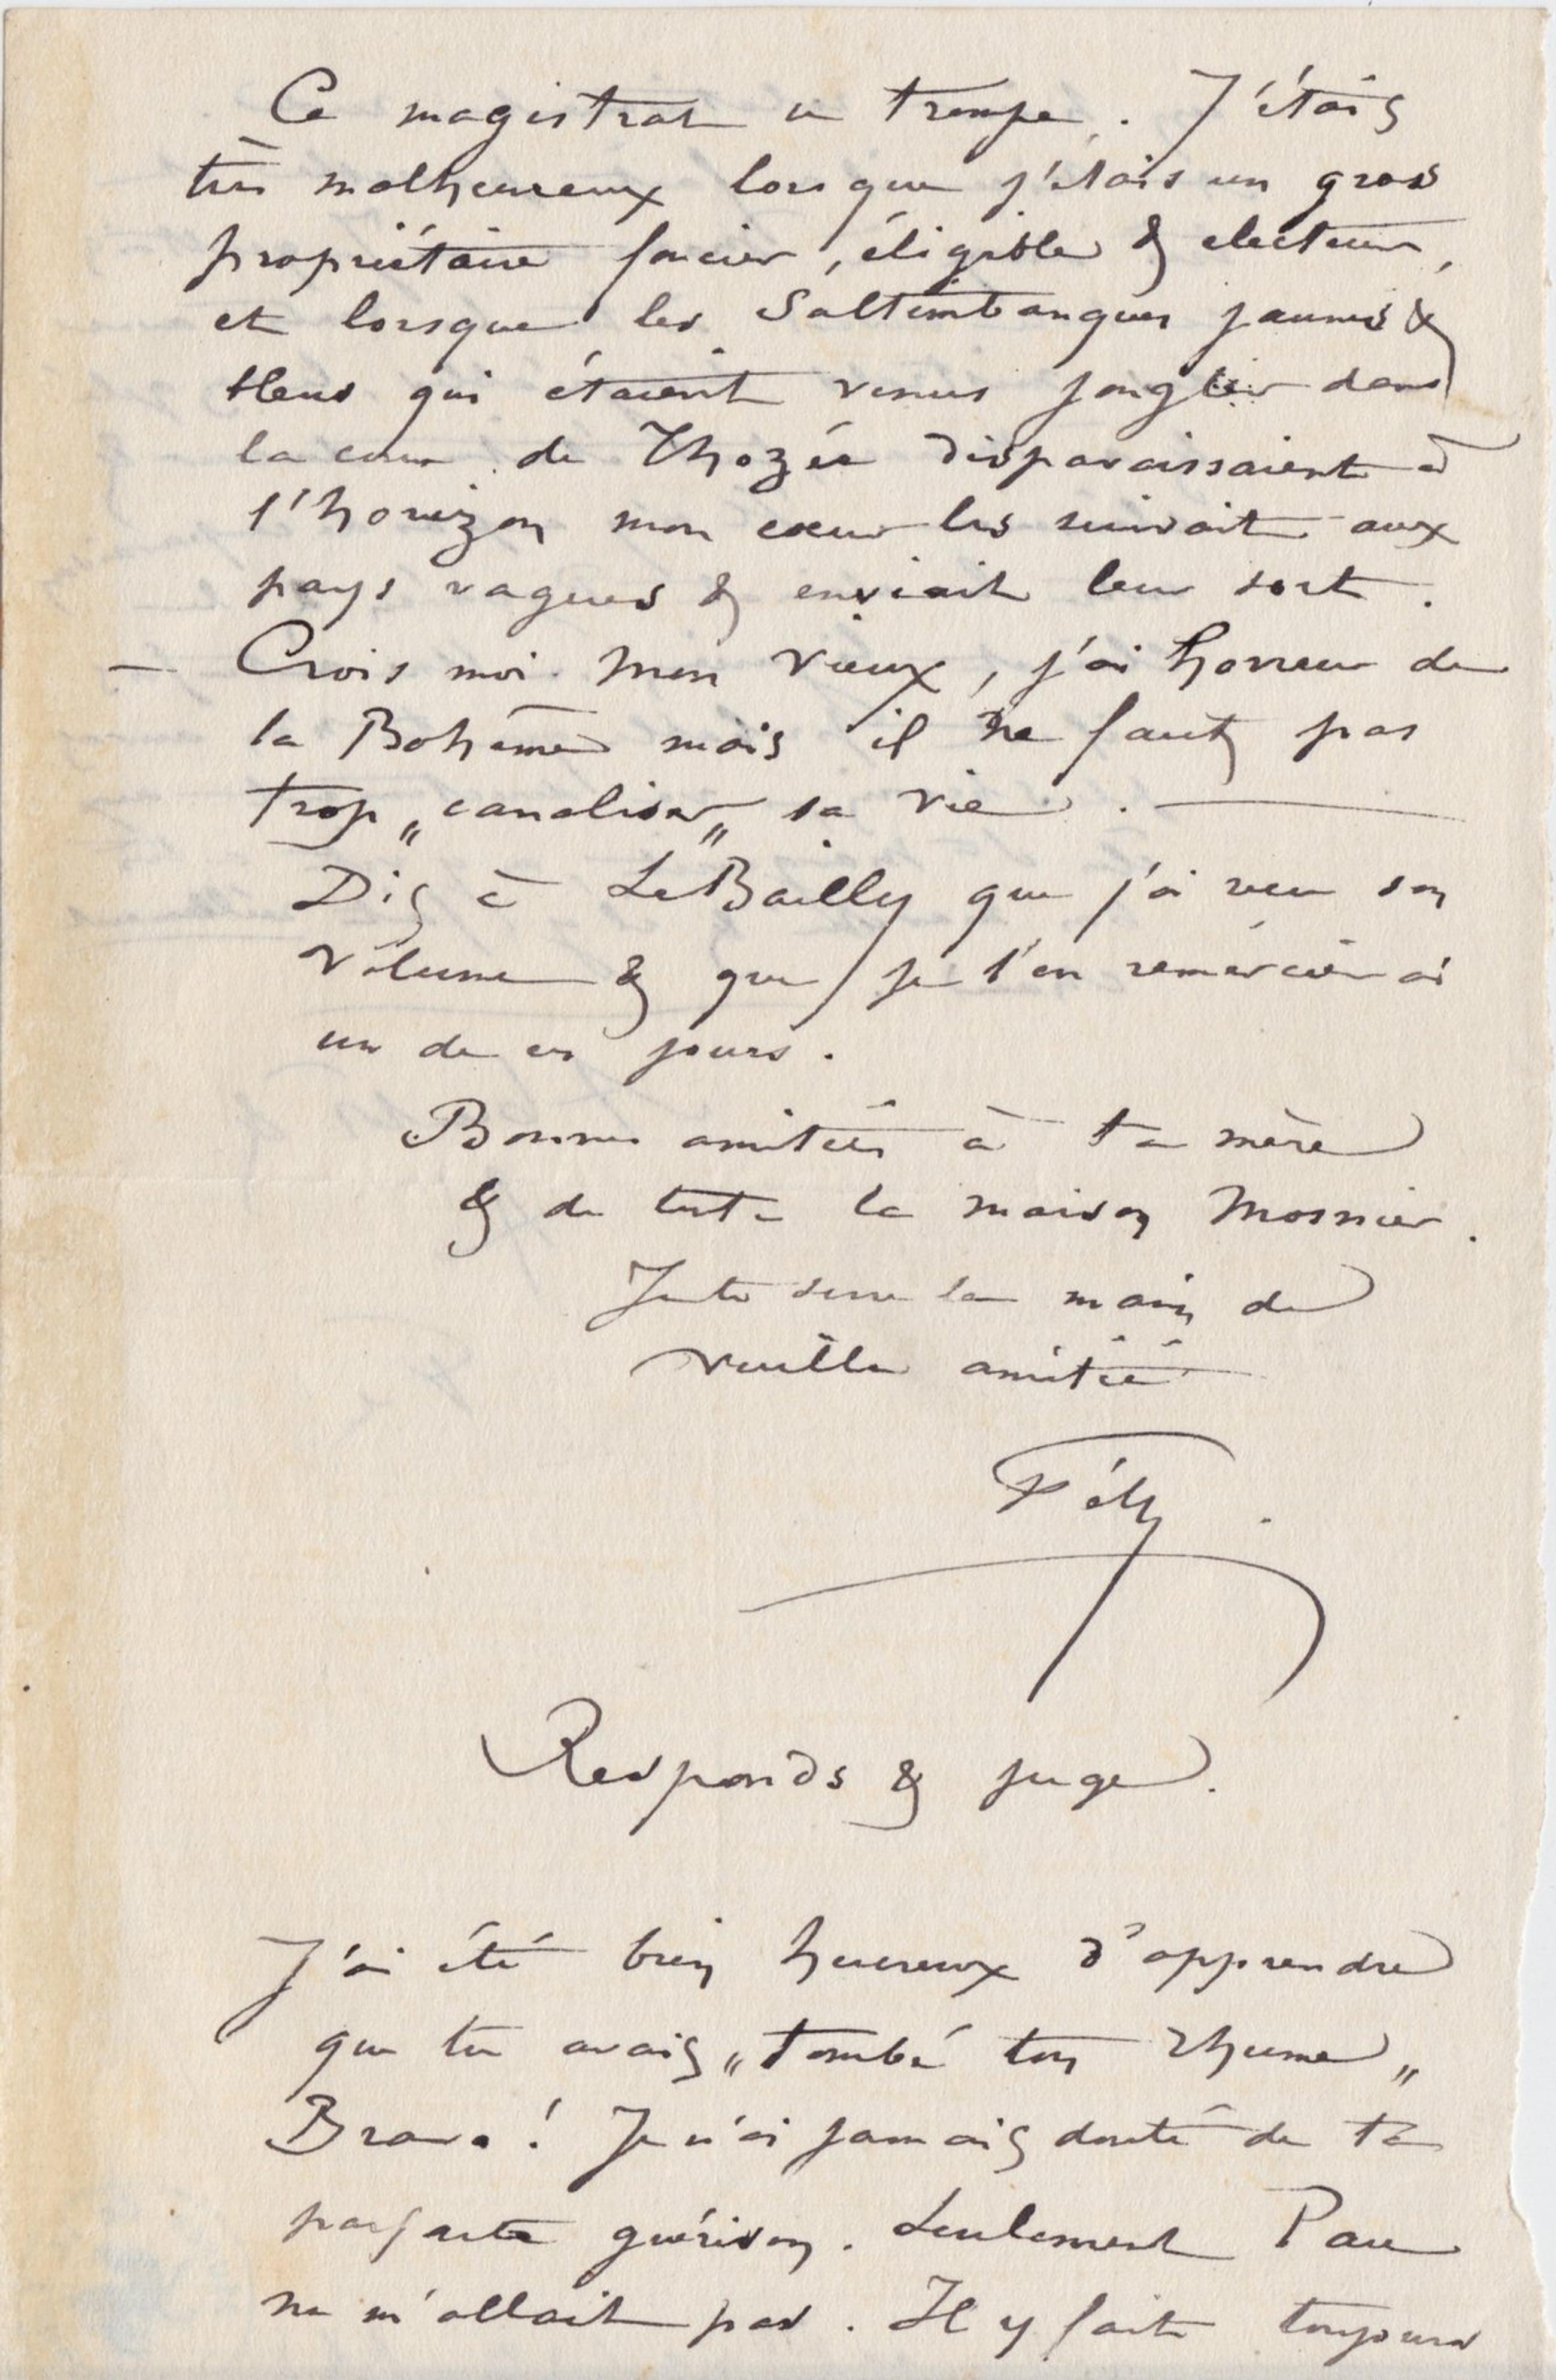 Ce magistrat se trompe. J'étais
très malheureux lorsque j'étais un gros
propriétaire foncier, éligible & electeur,
et lorsque les Saltimbanques jaunes &
bleus qui étaient venus jongler dans
la cour de Thozée disparaissaient à
l'horizon mon cœur les suivait aux
pays vagues & enviait leur sort.
— Crois moi mon vieux, j'ai horreur de
la Bohême mais il ne faut pas
trop „canaliser„ sa vie. —
Dis à LeBailly que j'ai reçu son
volume & que je l'en remercierai
un de ces jours.
Bonnes amitiés à ta mère
& de toute la maison Mosnier.
Je te serre la main de
vieille amitié
Fély.
Responds & juge.
J'ai été bien heureux d'apprendre
que tu avais „tombé ton rhume„
Bravo! Je n'ai jamais douté de ta
parfaite guérison. Seulement Pau
ne m'allait pas. Il y fait toujours